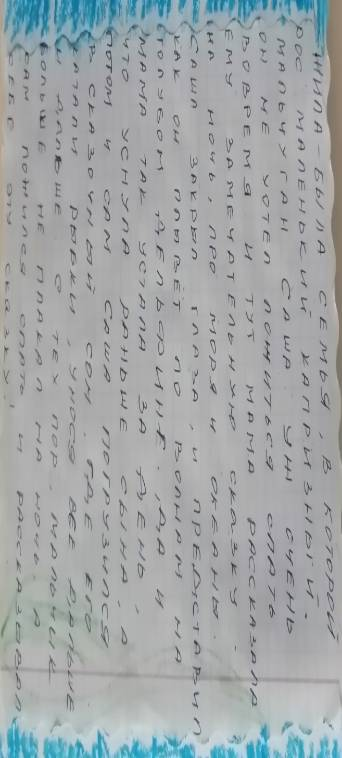 ЖИЛА-БЫЛА СЕМЬЯ, В КОТОРОЙ
РОС МАЛЕНЬКИЙ КАПРИЗНЫЙ
МАЛЬЧУГАН САША. УЖ ОЧЕНЬ
ОН НЕ ХОТЕЛ ЛОЖИТЬСЯ СПАТЬ
ВОВРЕМЯ И ТУТ МАМА РАССКАЗАЛА
ЕМУ ЗАМЕЧАТЕЛЬНУЮ СКАЗКУ
НА НОЧЬ, ПРО МОРЯ И ОКЕАНЫ.
САША ЗАКРЫЛ ГЛАЗА, И ПРЕДСТАВИЛ
КАК ОН ПЛЫВЁТ ПО ВОЛНАМ НА
ГОЛУБОМ ДЕЛЬФИНЕ. ДА И
МАМА ТАК УСТАЛА ЗА ДЕНЬ,
ЧТО УСНУЛА РАНЬШЕ СЫНА, А
ПОТОМ И САМ САША ПОГРУЗИЛСЯ
В СКАЗОЧНЫЙ СОН. ГДЕ ЕГО
РЫБКИ, УНОСЯ ВСЕ
ДАЛЬШЕ. С ТЕХ ПОР, МАЛЬЧИК
БОЛЬШЕ НЕ ПЛАКАЛ НА НОЧЬ, А
САМ ЛОЖИЛСЯ СПАТЬ И РАССКАЗЫВАЛ
СЕБЕ ЭТУ СКАЗКУ!